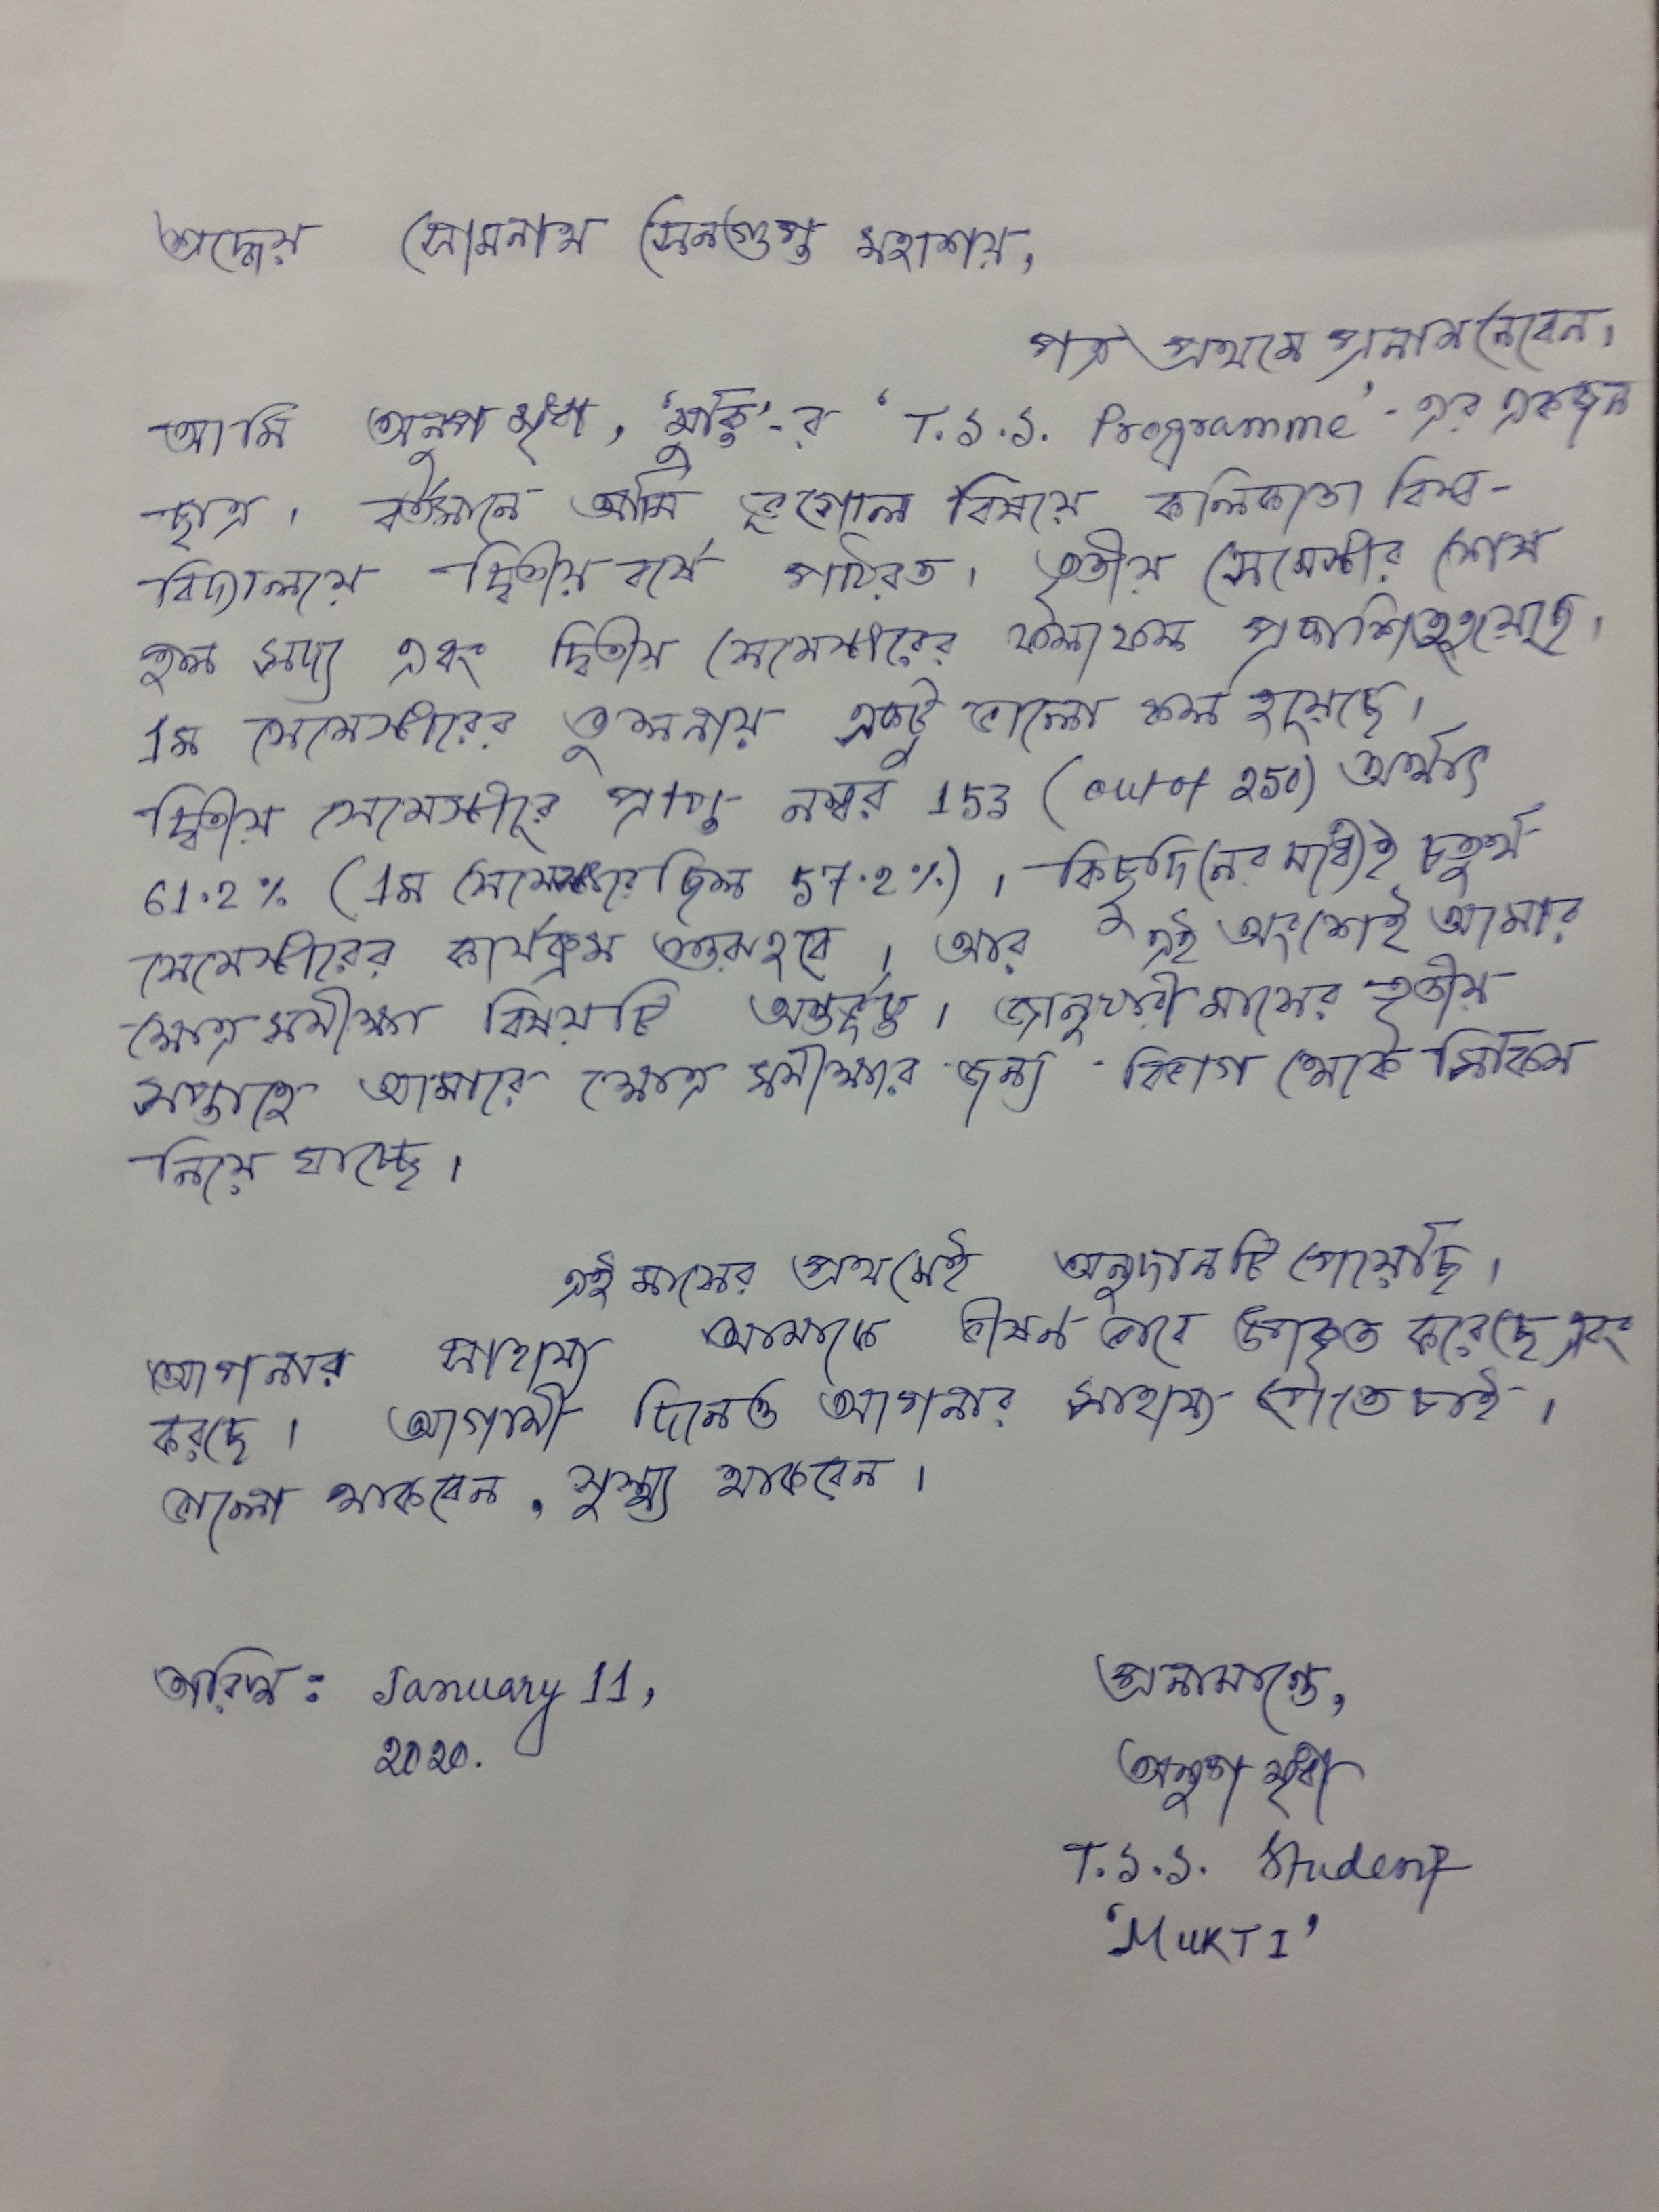 শ্রদ্ধেয় সোমনাথ সেনগুপ্ত মহাশয়,
পত্রে প্রথমে প্রনাম নেবেন।
আমি অনুপ মৃধা, 'মুক্তি'-র 'T.S.S. Programme'-এর একজন
ছাত্র। বর্তমানে আমি ভূগোল বিষয়ে কলিকাতা বিশ্ব-
বিদ্যালয়ে দ্বিতীয় বর্ষে পাঠরত। তৃতীয় সেমেস্টার শেষ
হল সদ্য এবং দ্বিতীয় সেমেস্টারের ফলাফল প্রকাশিত হয়েছে।
1ম সেমেস্টারের তুলনায় একটু ভালো ফল হয়েছে।
দ্বিতীয় সেমেস্টারে প্রাপ্ত নম্বর 153 (out of 250) অর্থাৎ
61.2% (1ম সেমেস্টারে ছিল 57.2%)। কিছুদিনের মধ্যেই চতুর্থ
সেমেস্টারের কার্যক্রম শুরু হবে। আর এই অংশেই আমার
ক্ষেত্র সমীক্ষা বিষয়টি অন্তর্ভুক্ত। জানুয়ারী মাসের তৃতীয়
সপ্তাহে আমারে ক্ষেত্র সমীক্ষার জন্য বিভাগ থেকে সিকিম
নিয়ে যাচ্ছে।
এই মাসের প্রথমেই অনুদানটি পেয়েছি।
আপনার সাহায্য আমাকে ভীষন ভাবে উপকৃত করেছে এবং
করছে। আগামী দিনেও আপনার সাহায্য পেতে চাই।
ভালো থাকবেন, সুস্থ্য থাকবেন।
তারিখ: January 11,
2020.
প্রনামান্তে,
অনুপ মৃধা
T.S.S. Student
'MUKTI'